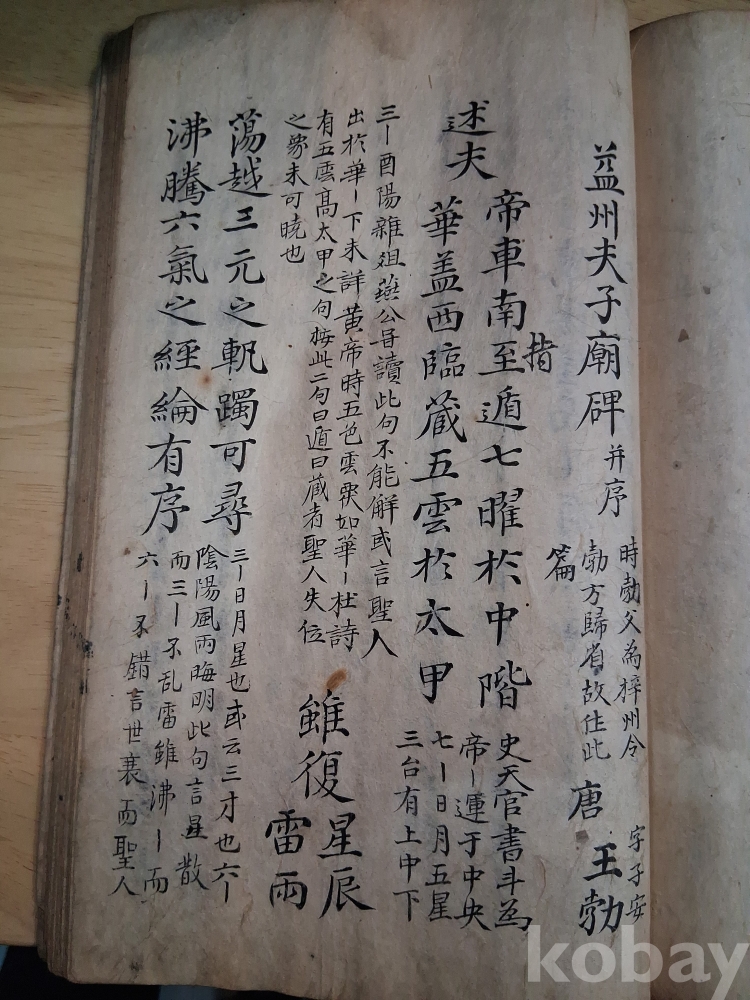 益州夫子廟碑 并序
時勃父為梓州令
勃方歸省故仕此
篇
唐 王勃
字子安
述夫
帝車南至遁七曜於中階
指
華盖西臨蔵五雲於太甲
史天官書斗為
帝丨運于中央
七丨日月五星
三台有上中下
三丨酉陽雜俎燕公㝵讀此句不能解或言聖人
出於華丨下未詳黄帝時五色雲氣如華丨杜詩
有五雲髙太甲之句按此二句曰遁曰蔵者聖人失位
之象未可曉也
雖復
星辰
雷雨
蕩越三元之軓躅可尋
沸騰六氣之經綸有序
三丨日月星也或云三才也六丨
陰陽風雨晦明此句言星散
而三丨不乱雷雖沸丨而
六丨不錯言世衰而聖人
kobay